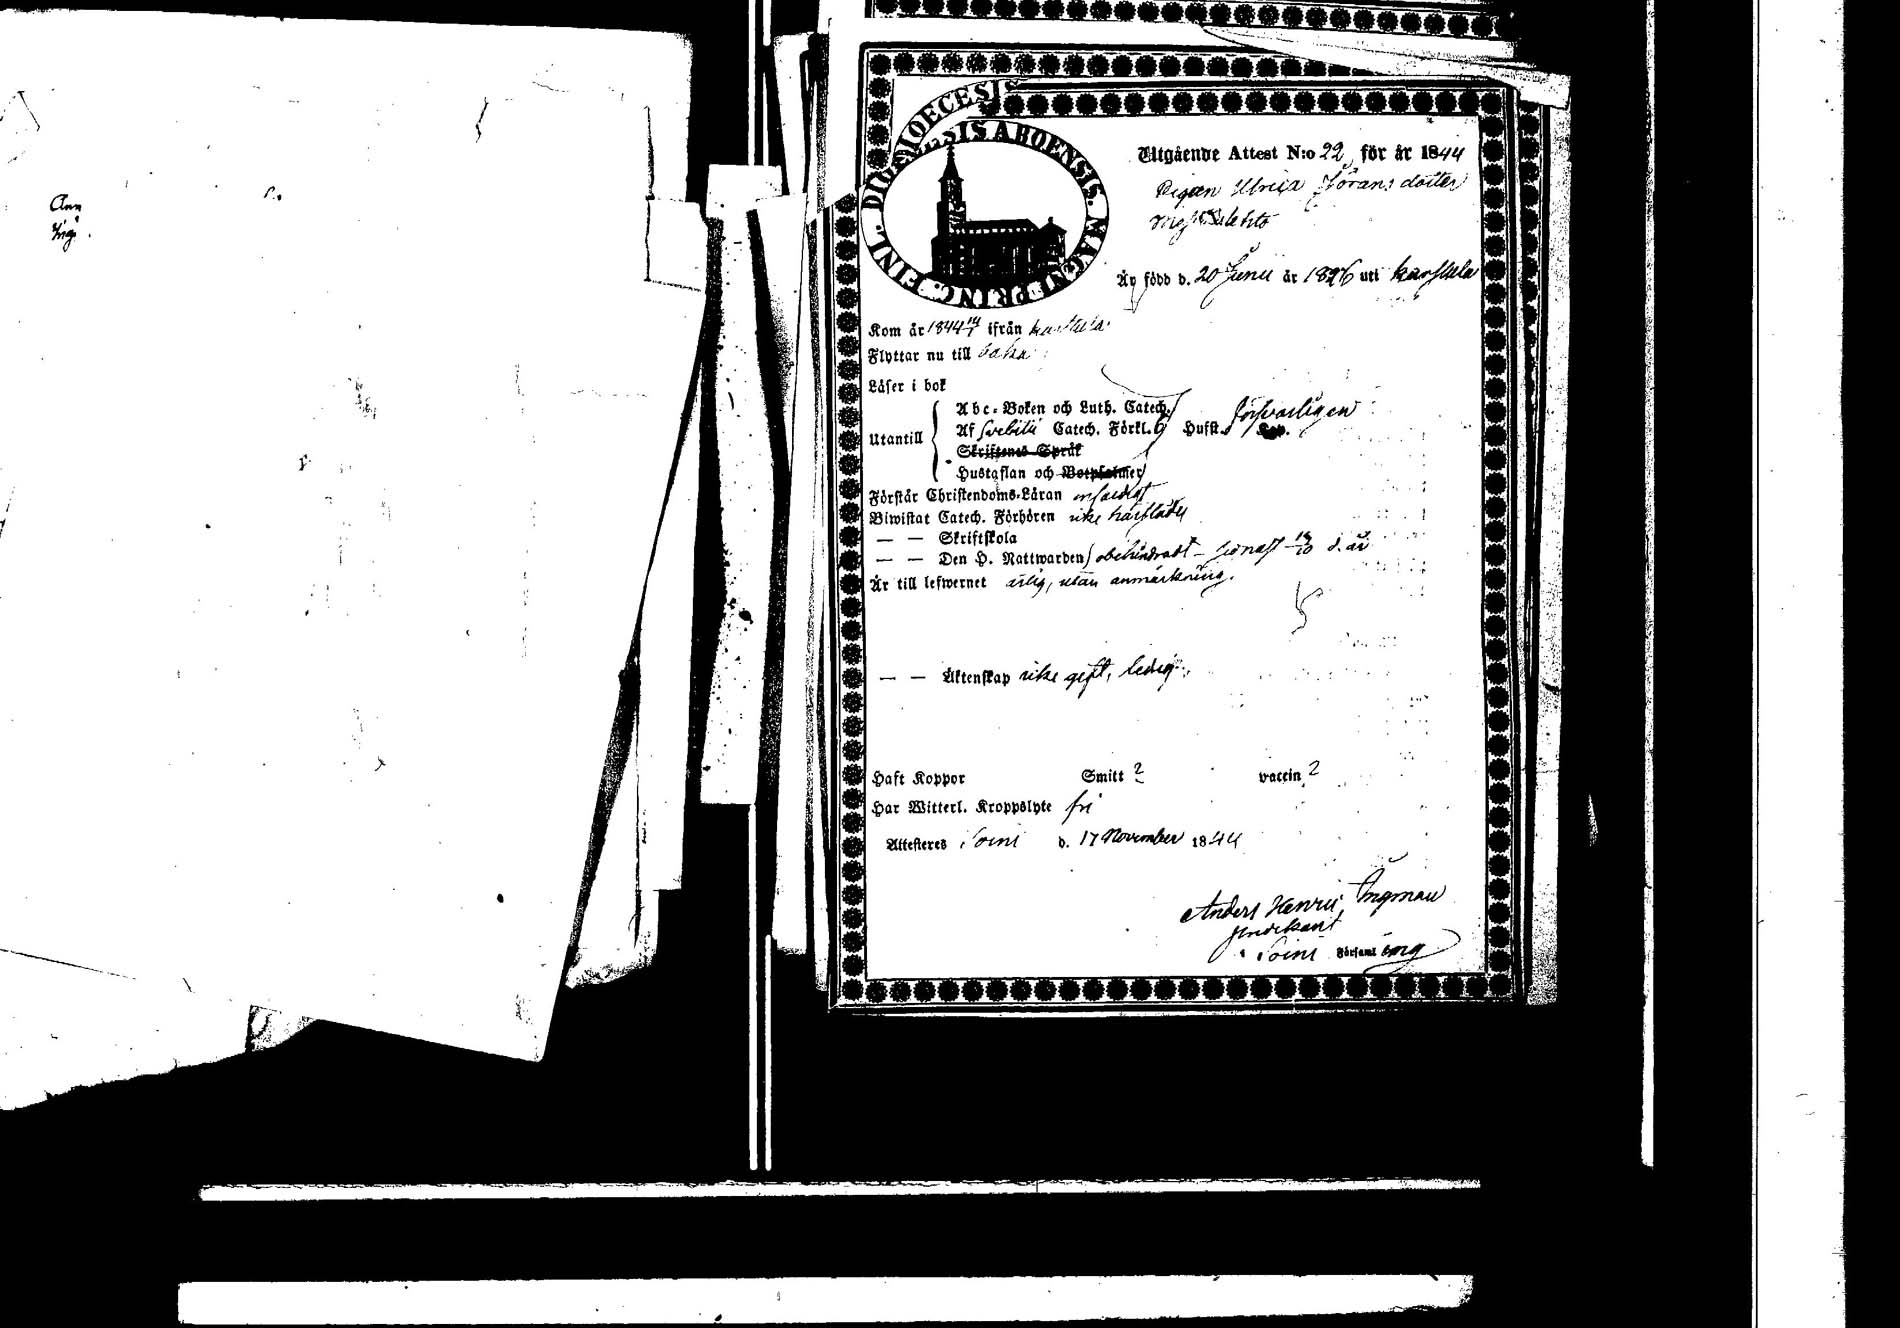 Ann
DIOECESIS ABOENSIS. MAGNI PRINC. FINL.
Utgående Attest N:o 22, för år 1844
Pigan Ulrica Jöransdotter
Är född d. 20 Junii år 1826 uti Karstula
Kom år 1844 14/1 ifrån Karstula
Flyttar nu till baka
Läser i bok
Abc-Boken och Luth. Catech.
Utantill
Af Svebilii Catech. Förkl. Husst. försvarligen
Skriftenes Språk
Hustaflan och Botpsalmer
Förstår Christendoms-Läran enfaldigt
Biwistat Catech. Förhören icke härstädes
— — Skriftskola
— — Den H. Nattwarden obehindradt – senast d. år
Är till lefwernet ärlig, utan anmärkning.
— — Äktenskap icke gift, ledig.
Haft Koppor Smitt ? vaccin ?
Har Witterl. Kroppslyte fri
Attesteras Soini d. 17 November 1844
Anders Henric Ingman
Predikant
i Soini Församling